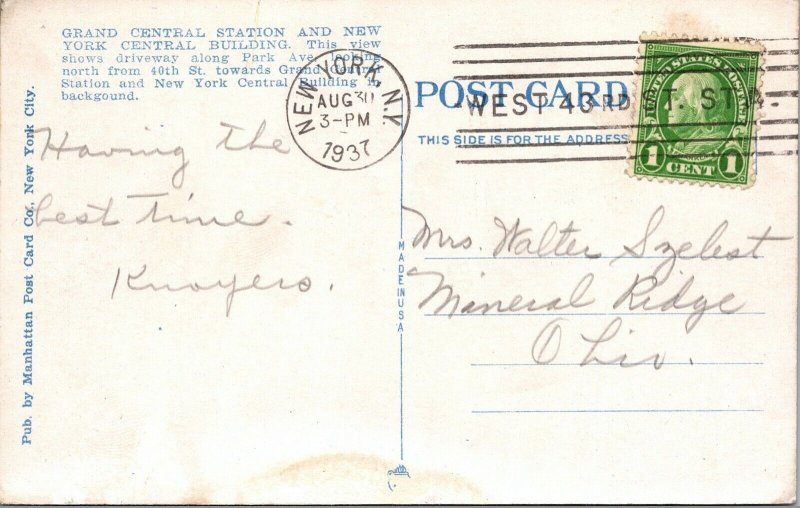 GRAND CENTRAL STATION AND NEW
YORK CENTRAL BUILDING. This view
shows driveway along Park Ave. looking
north from 40th St. towards Grand Central
Station and New York Central Building in
backgound.
Having the
best time.
Knoyers.
Pub. by Manhattan Post Card Co., New York City.
MADE IN USA
NEW YORK N.Y.
AUG 30
3-PM
1937
POST CARD
WEST 43RD ST. STA.
THIS SIDE IS FOR THE ADDRESS
UNITED STATES POSTAGE
1 CENT 1
Mrs. Walter Szelest
Mineral Ridge
Ohio.